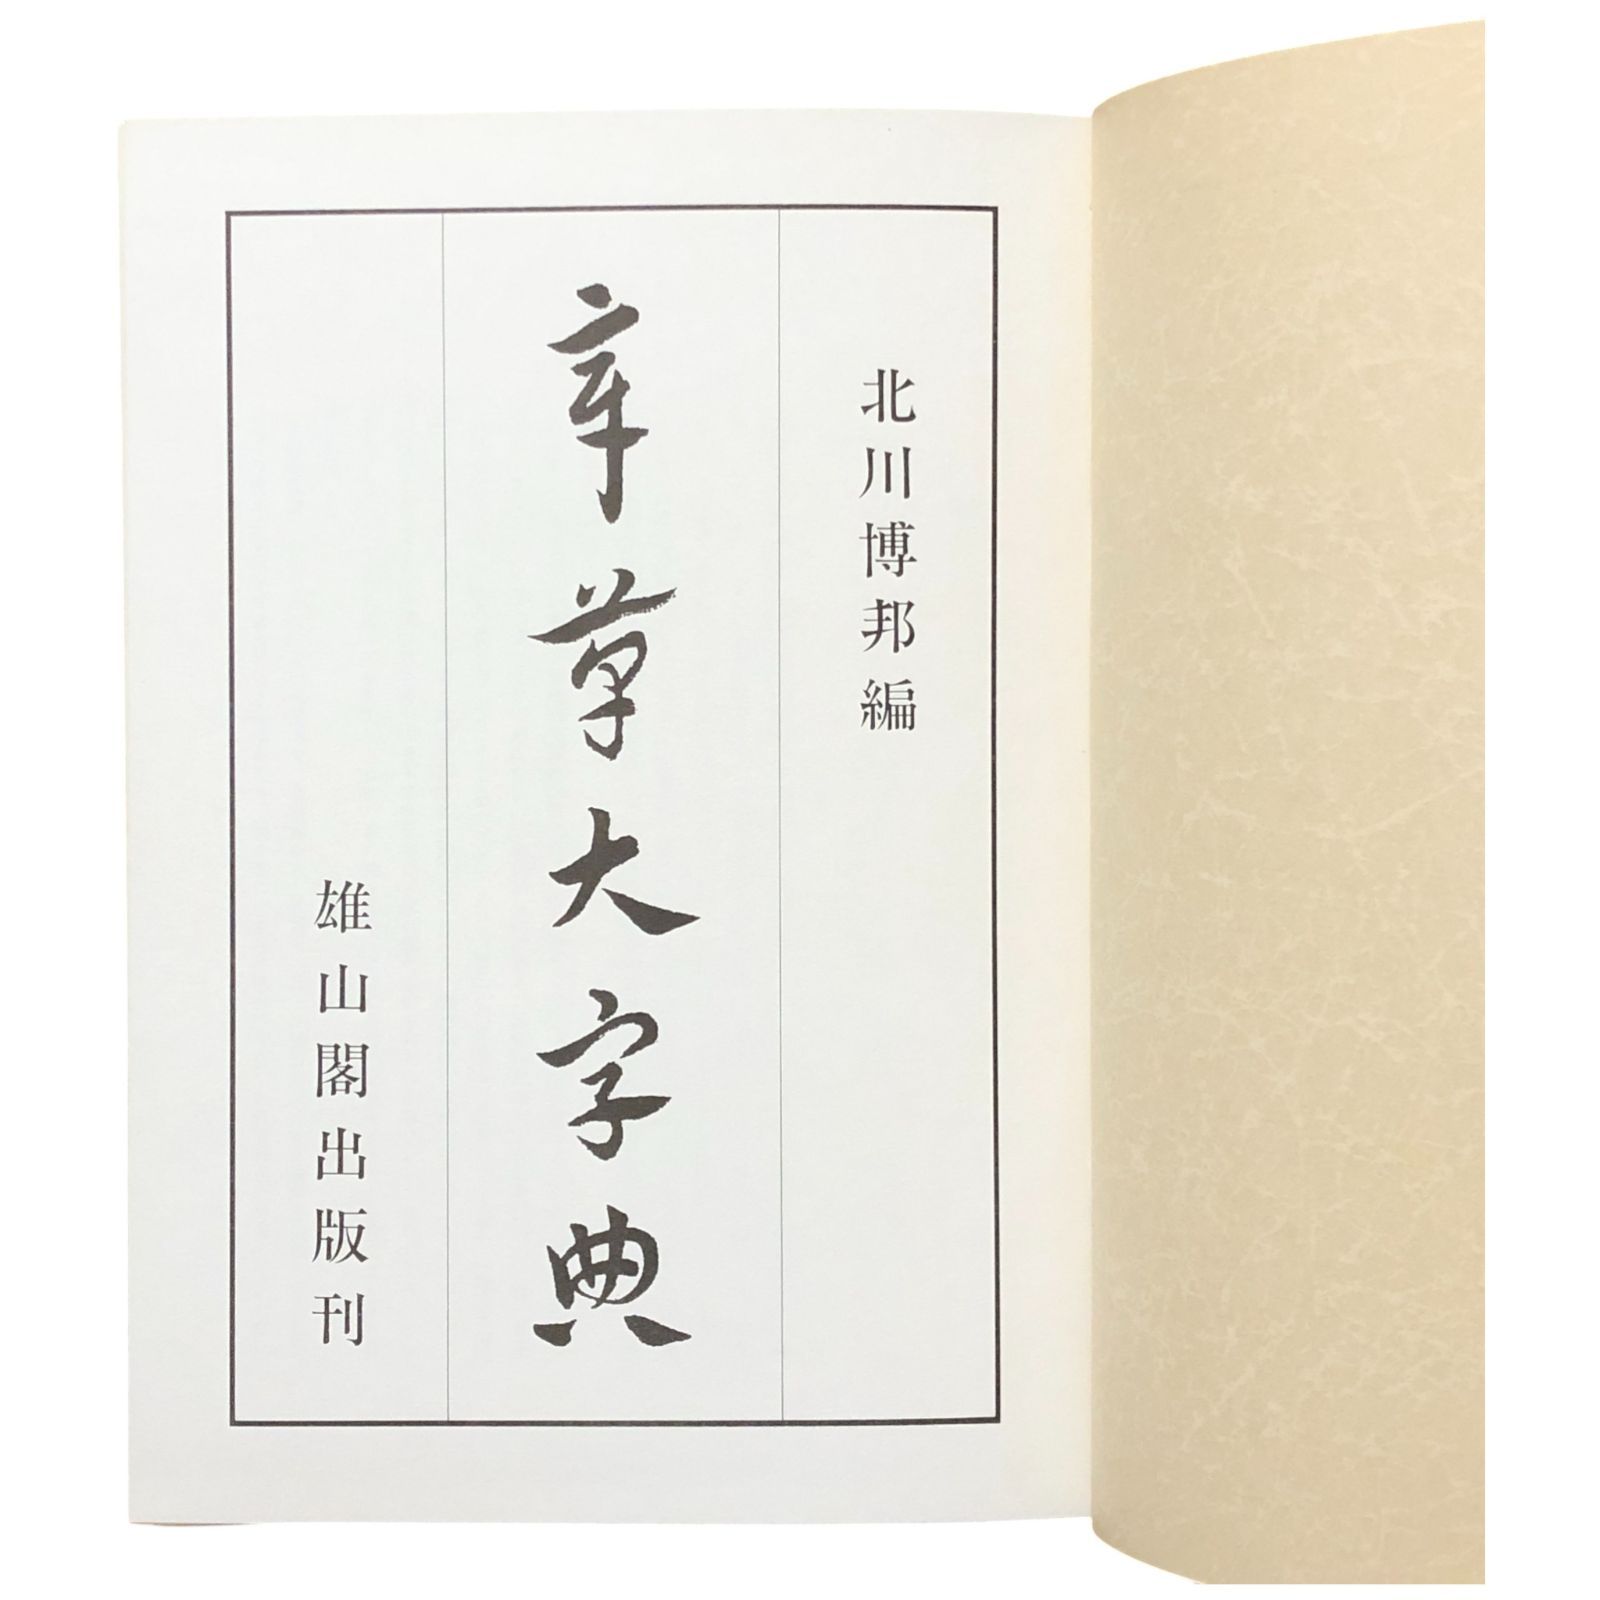 北川博邦編
章草大字典
雄山閣出版刊